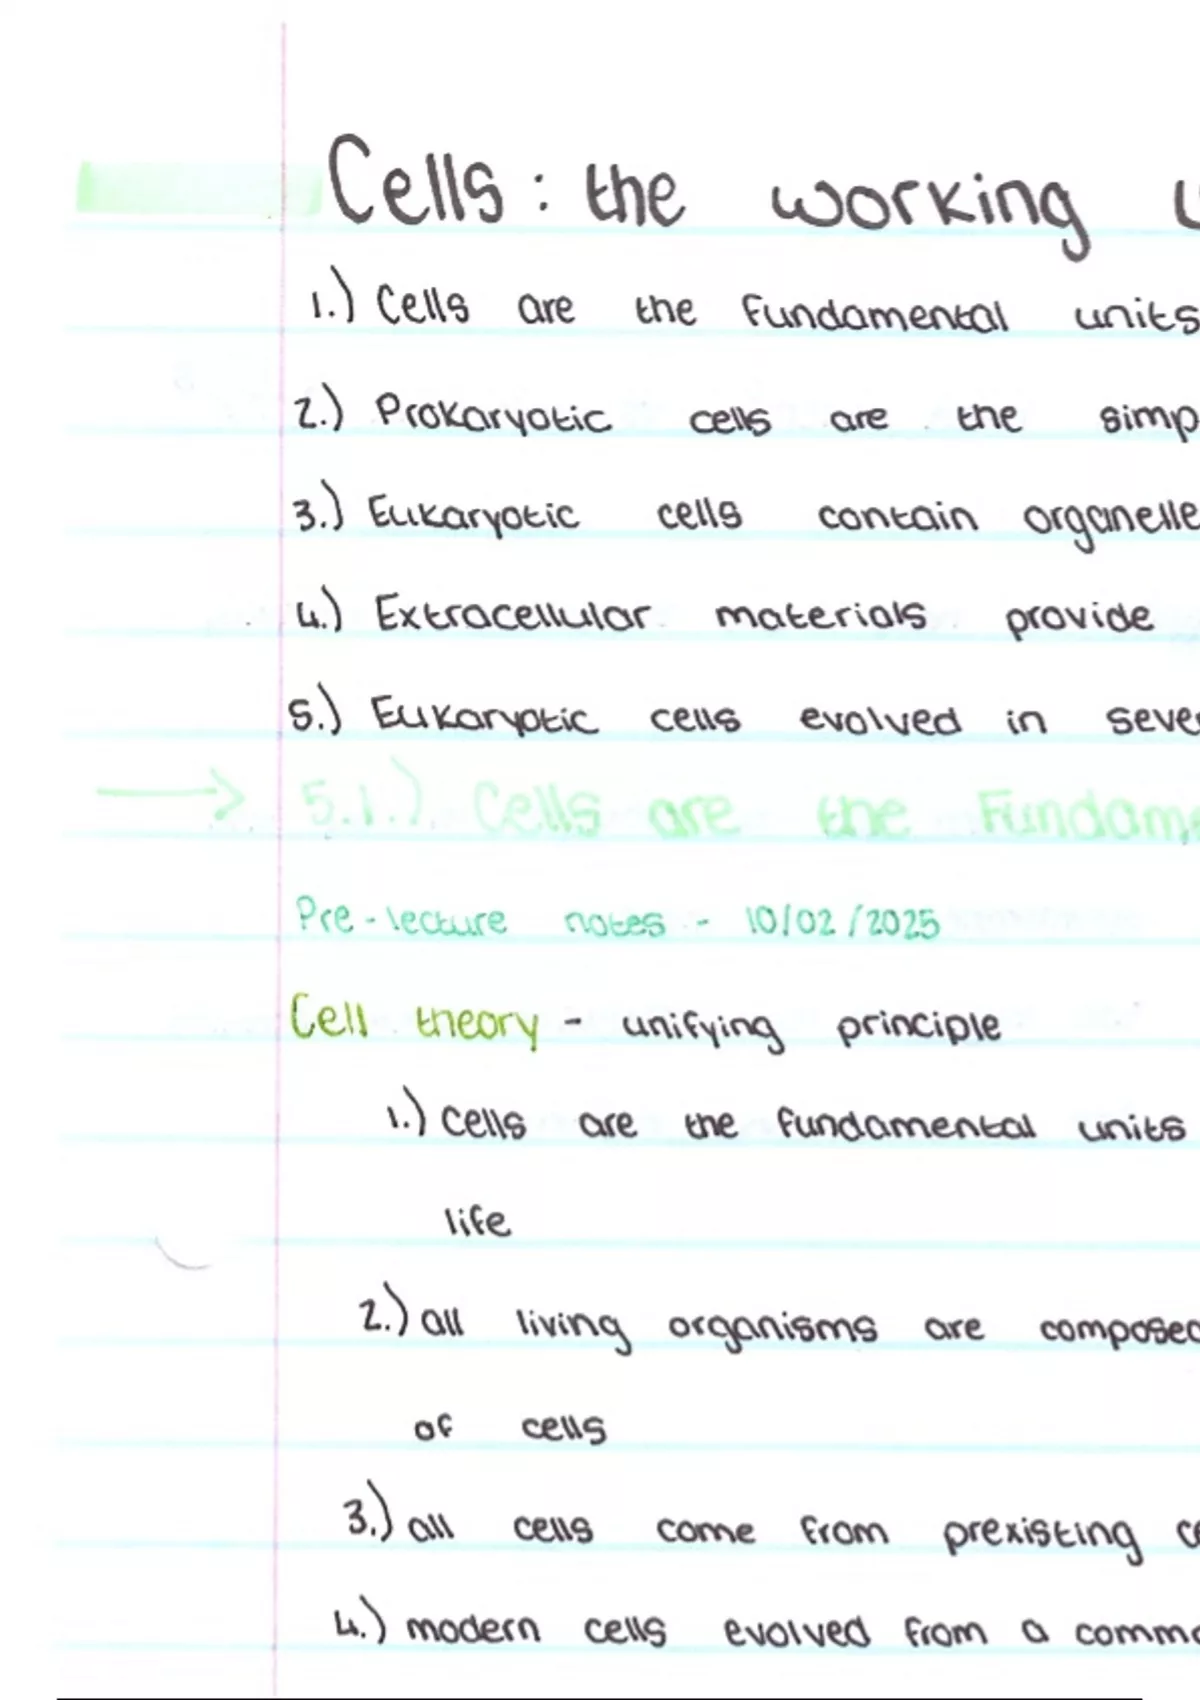 Cells: the working
1.) Cells are the fundamental units
2.) Prokaryotic cells are the simp
3.) Eukaryotic cells contain organelle
4.) Extracellular materials provide
5.) Eukaryotic cells evolved in seve
5.1.) Cells are the Fundam
Pre-lecture notes - 10/02/2025
Cell theory - unifying principle
1.) Cells are the fundamental units
life
2.) all living organisms are compose
of cells
3.) all cells come from prexisting ce
4.) modern cells evolved from a comm